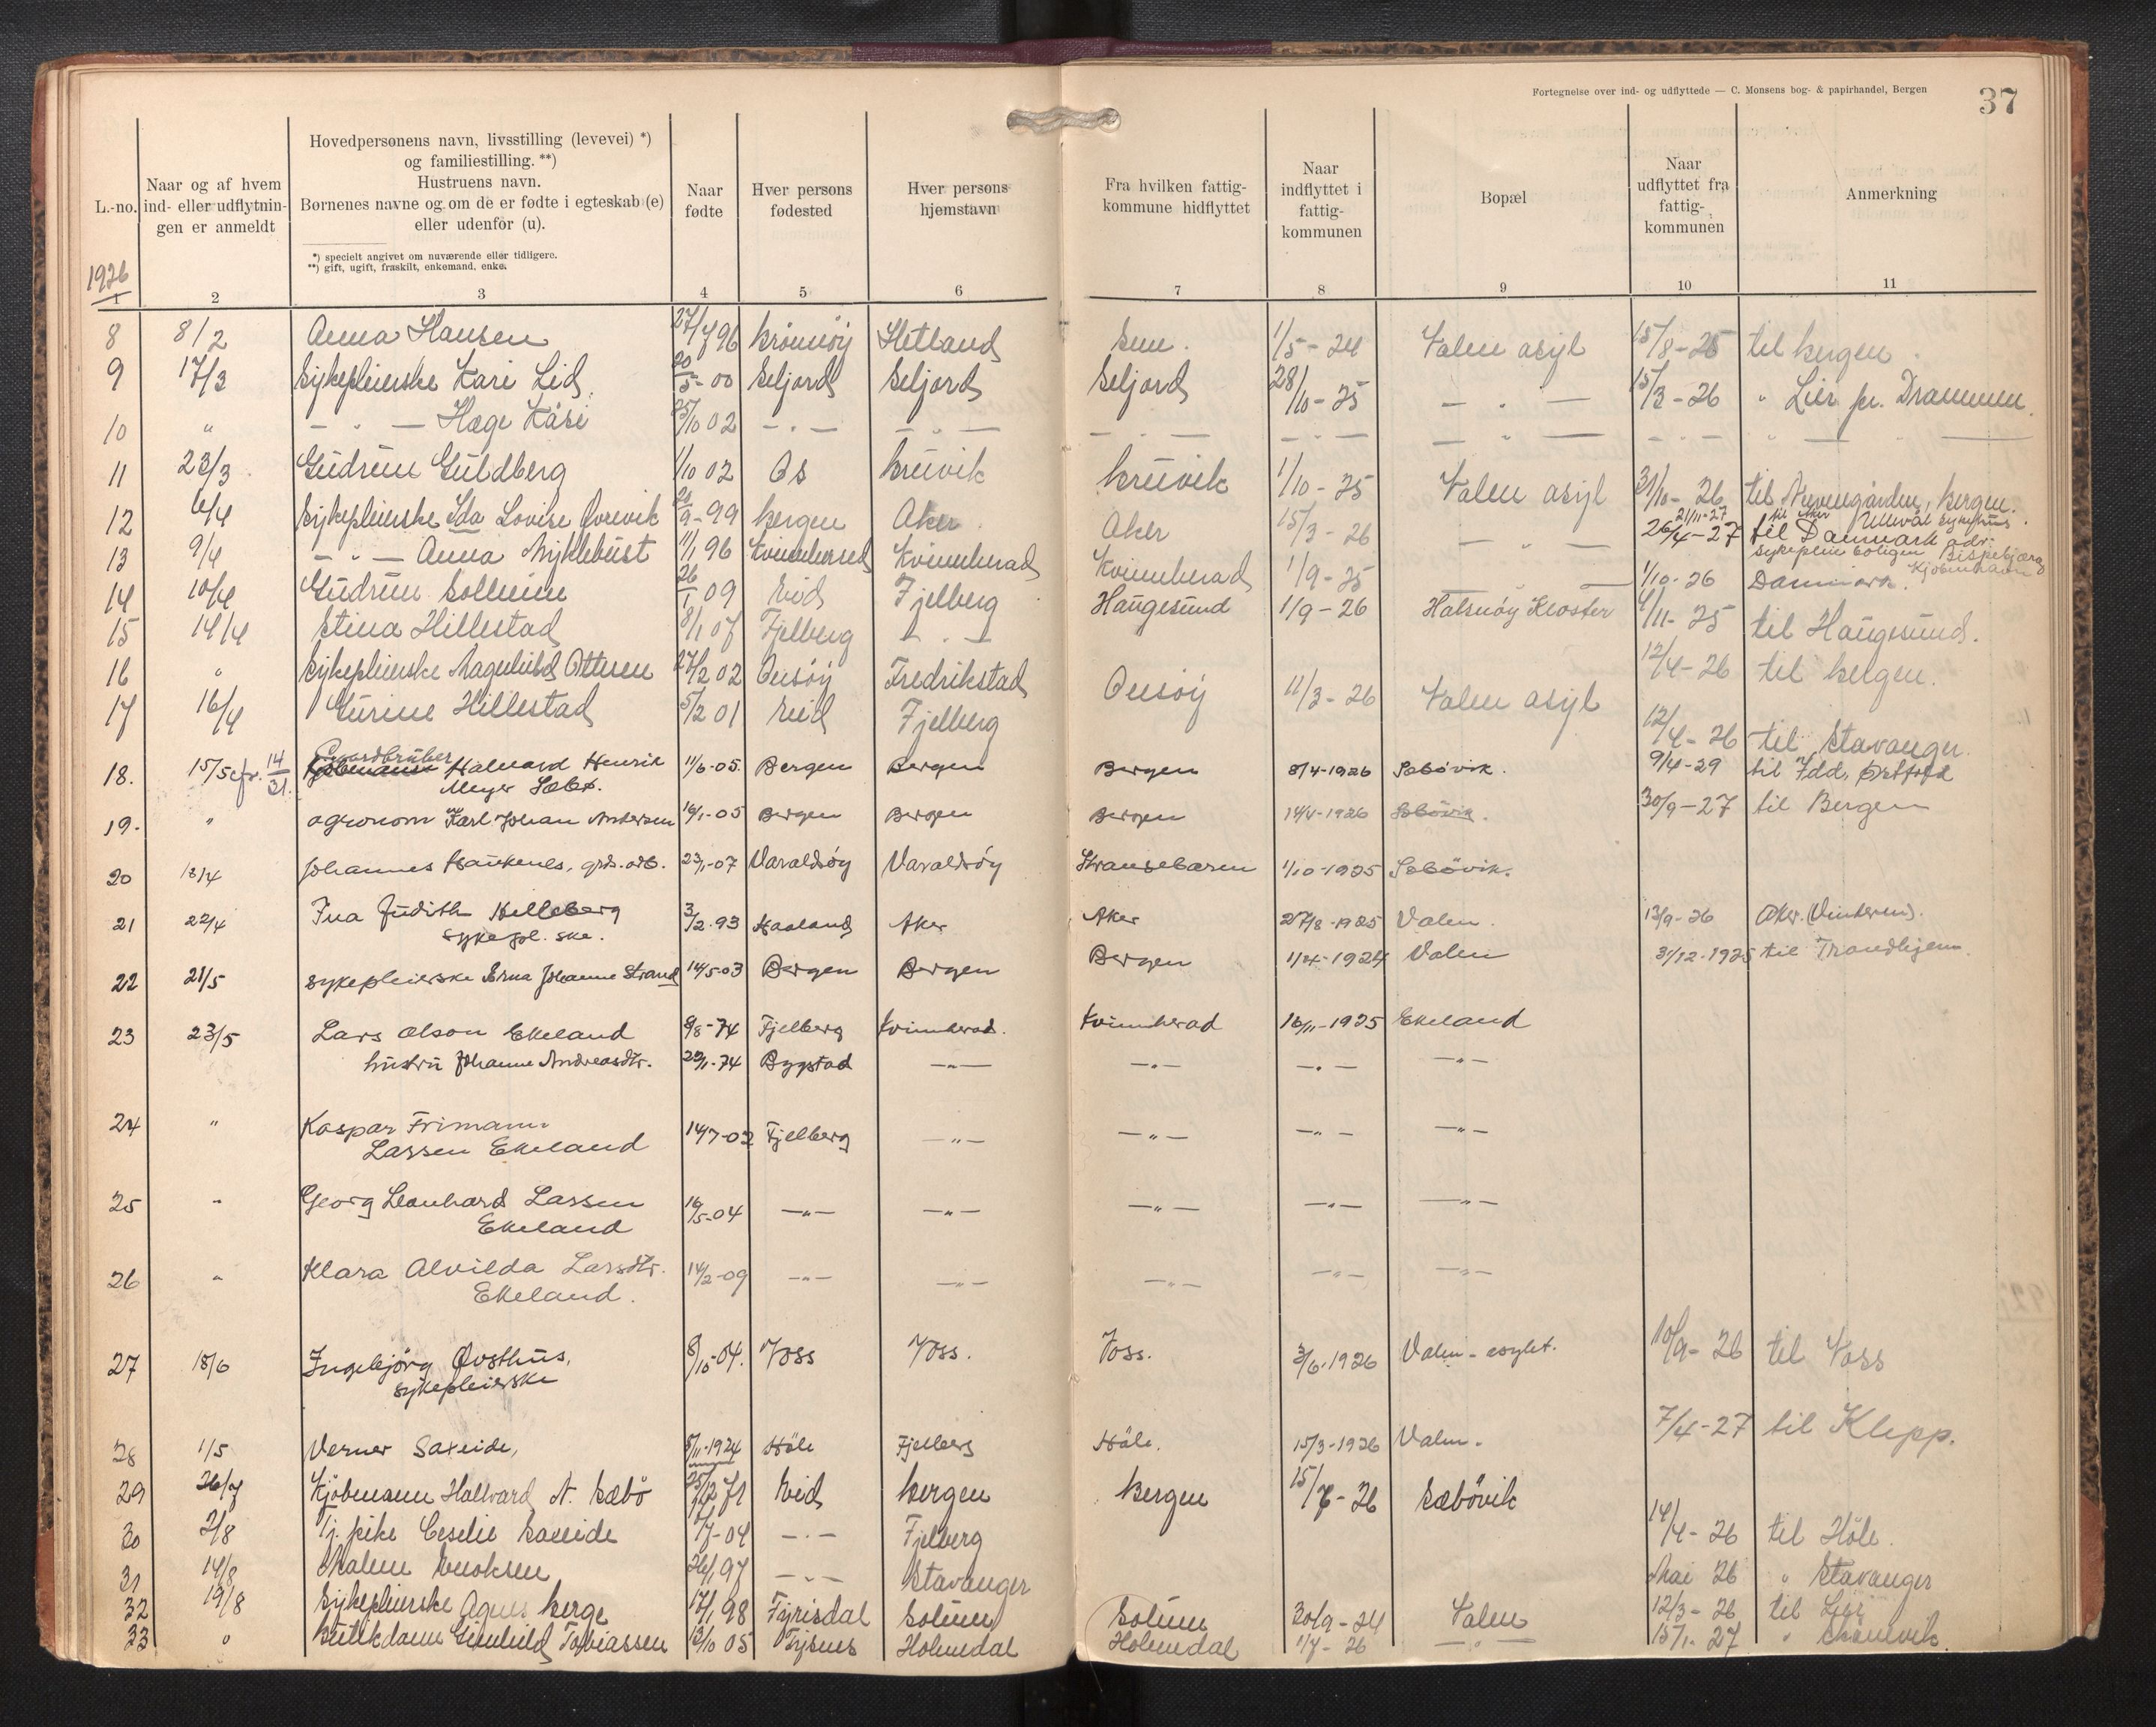 Fortegnelse over ind- og udflyttede — C. Monsens bog- & papirhandel, Bergen
37
L.-no.
Naar og af hvem ind- eller udflytningen er anmeldt
Hovedpersonens navn, livsstilling (levevei) *)
og familiestilling. **)
Hustruens navn.
Børnenes navne og om de er fødte i egteskab (e)
eller udenfor (u).
*) specielt angivet om nuværende eller tidligere.
**) gift, ugift, fraskilt, enkemand, enke.
Naar fødte
Hver persons fødested
Hver persons hjemstavn
Fra hvilken fattigkommune hidflyttet
Naar indflyttet i fattigkommunen
Bopæl
Naar udflyttet fra fattigkommunen
Anmerkning
1926
1 2 3 4 5 6 7 8 9 10 11
8 8/2 Anna Hansen 96 Hetland 1/5-24 Valen asyl 15/8-25 til Bergen
9 17/3 Sykepleierske Kari Lid 20/5-00 Seljord Seljord Seljord 28/10-25 — " — 15/3-26 " Lier pr. Drammen.
10 " — " — Hæge Kåsi 25/10 02 — " — — " — — " — — " — — " — — " — " — —
11 23/3 Gudrun Guldberg 1/10 02 Os Bruvik Bruvik 1/10-25 Valen asyl 31/10-26 til Bergen.
12 6/4 Sykepleierske Ida Lovise Øvrevik 9-99 Bergen Aker Aker 15/3-26 — " — 26/4-27 til Danmark adr.
21/11-27 til Aker Ullevål sykehus.
sykepleieboligen Bispebjærg
Kjøbenhavn
13 9/4 — " — Anna Myklebust 11/1 96 Kvinnherred Kvinnherad Kvinnherad 1/9-25 1/10-26 Danmark.
14 10/4 Gudrun Solheim 26/1 09 Eid Fjelberg Haugesund 1/9-26 Halsnøy Kloster
15 14/4 Stina Hillestad 8/1 07 Fjelberg — " — 11-25 til Haugesund.
16 " Sykepleierske Magnhild Ottesen 27/2 02 Onsøy Fredrikstad Onsøy 11/3-26 Valen asyl 12/4-26 til Bergen.
17 16/4 Gurine Hillestad 5/2 01 Eid Fjelberg 12/4-26 til Stavanger.
18. 15/5 cfr. 14/31 Gaardbruker Halvard Henrik 11/6-05. Bergen Bergen Bergen 8/4-1926 Sæbövik. 9/4-29 til Idd, Östfold
Meyer Sæbø.
19. " agronom Karl Johan Andersen 16/1-05 Bergen Bergen Bergen 14/4-1926 Sæbövik. 30/9-27 til Bergen
20 18/4 Johannes Haukenes, grds.arb. 23/1-07 Varaldsöy Varaldsöy Strandebarm 1/10-1925 Sæbövik.
21 22/4 Ina Judith Helleberg 3/2-93 Haaland Aker Aker 27/8-1925 Valen. 13/9-26 Aker. (Vinderen).
sykepl.ske.
22 21/5 sykepleierske Erna Johanne Strand 14/5-03 Bergen Bergen Bergen 1/4-1924 Valen 31/12-1925 til Trondhjem.
23 23/5 Lars Olson Ekeland 8/8-74 Fjelberg Kvinnherad. Kvinnherad 16/11-1925 Ekeland
hustru Johanne Andreasdtr. 29/1-74 Bygstad — " — — " — — " — — " —
24 " Kaspar Frimann 14/7-02 Fjelberg — " — — " — — " — — " —
Larsen Ekeland
25 " Georg Leonhard Larsen 16/5-04 — " — — " — — " — — " — — " —
Ekeland
26 " Klara Alvilda Larsdtr. 14/2-09 — " — — " — — " — — " — — " —
Ekeland.
27 18/6 Ingebjörg Qvsthus, 8/10-04. Voss Voss. Voss. 3/6-1926 Valen-asylet. 10/9-26 til Voss
sykepleierske
28 1/5 Verner Saxeide, 8/11-1924 Höle Fjelberg Höle. 15/3-1926 Valen. 7/4-27 til Klepp.
29 26/7 Kjöbmann Hallvard N. Sæbö 25/12 71 Eid Bergen Bergen 15/7-26 Sæbövik
30 2/8 Tj. pike Ceselie Saxeide 7-04 — " — Fjelberg 14/4-26 til Höle.
31 14/8 Malene Enoksen 26/1 97 — " — Stavanger Mai 26 " Stavanger
32 19/8 Sykepleierske Agnes Berge 17/1 98 Fyrisdal Solum Solum 30/9-24 Valen 12/3-26 til Lier
33 " Butikdame Gunhild Tobiassen 13/10 05 Tysnes Holmedal Holmedal 1/7-26 — " — 15/1-27 " Skånevik.